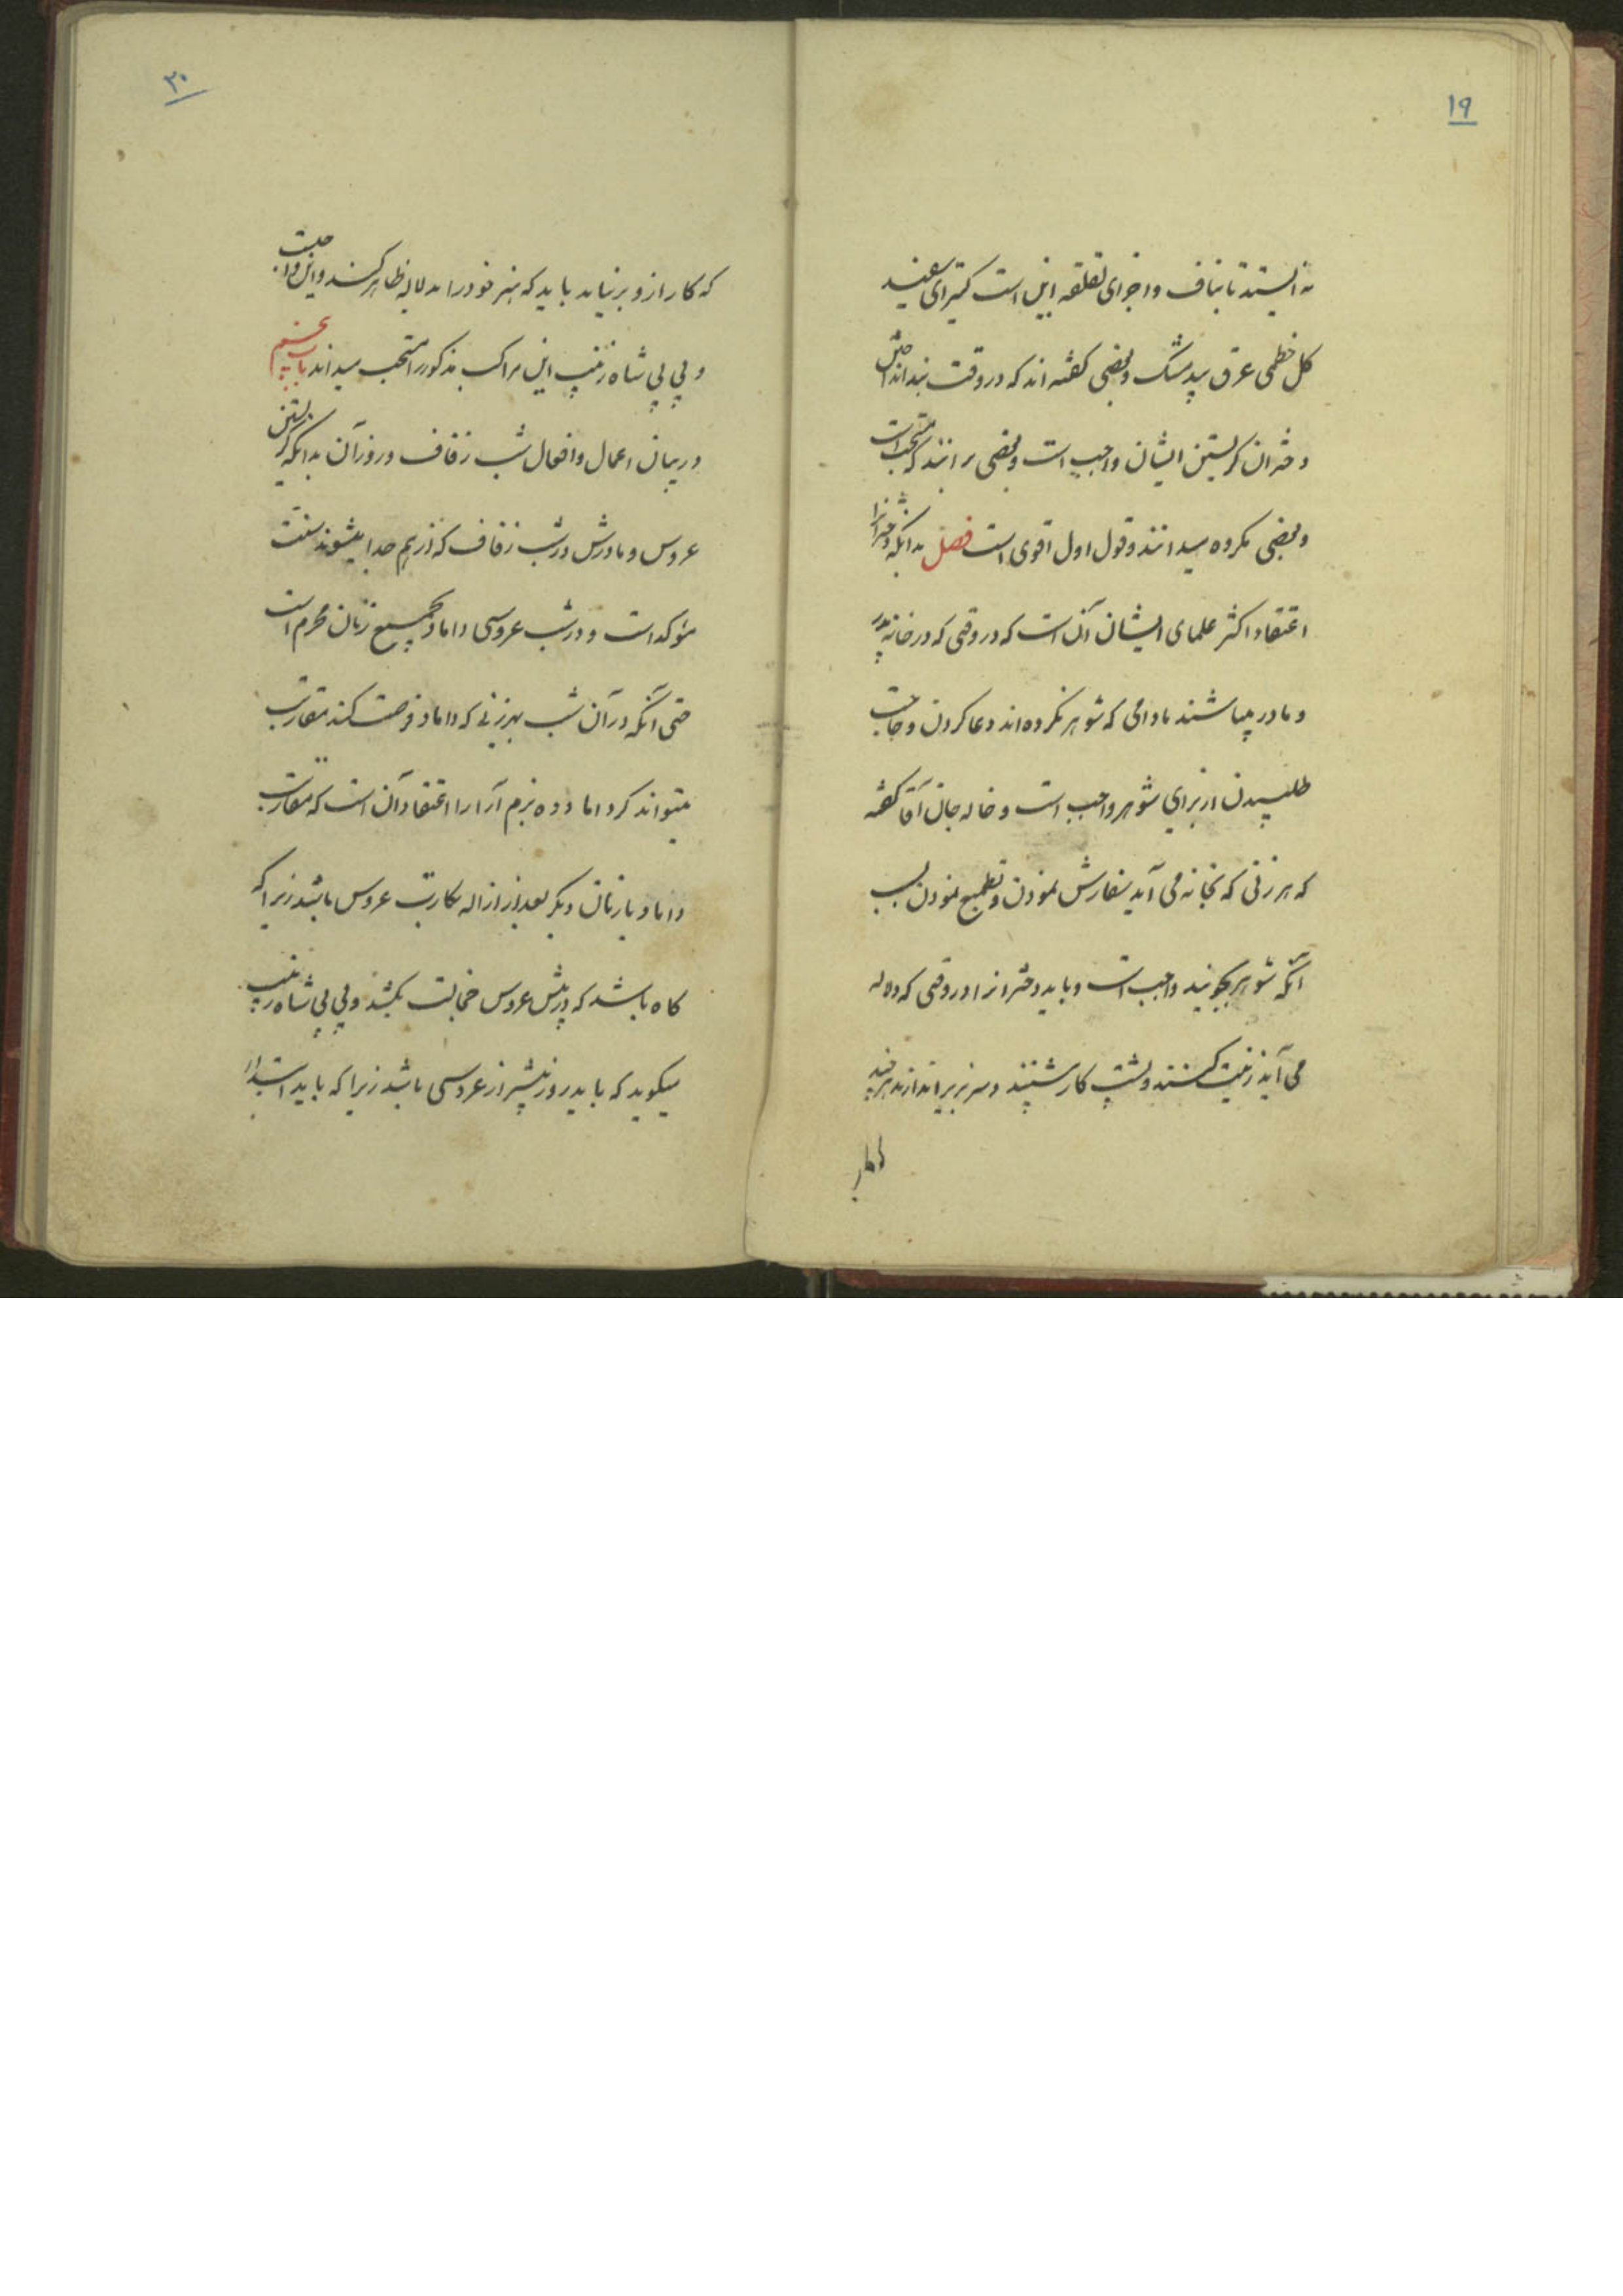 ۱۹
نه ایستد تا بناف و اجزای لقلقه این است کتیرای سفید
کل خطمی عرق بیدمشک و بعضی کفته اند که در وقت بند انداختن
دختران کریستن ایشان واجب است و بعضی برانند که مستحب است
و بعضی مکروه میدانند و قول اول اقوی است فصل بدانکه دخترانرا
اعتقاد اکثر علمای ایشان آن است که در وقتی که در خانه پدر
و مادر میباشند مادامی که شوهر نکرده اند دعا کردن و حاجت
طلبیدن از برای شوهر واجب است و خاله جان آقا کفته
که هر زنی که بخانه می آید سفارش نمودن و تطمیع نمودن بسبب
آنکه شوهر بجویند واجب است و باید دخترانرا در وقتی که
می آید زینت کنند و پشت کار نشینند و سر بزیر اندازند هرچند
۲۰
که کار ازو بر نیاید باید که هنر خود را به لاله ظاهر کنند و این واجبست
و بی بی شاه زینب این مراکب مذکور را مستحب میداند باب پنجم
در بیان اعمال و افعال شب زفاف و روز آن بدانکه کریستن
عروس و مادرش در شب زفاف که از هم جدا میشوند سنت
مؤکد است و در شب عروسی داماد بجمیع زنان محرم است
حتی آنکه در آن شب بهر زنی که داماد فرصت کند مقاربت
میتواند کرد اما دده بزم آرا را اعتقاد آن است که مقاربت
داماد با زنان دیکر بعد از ازاله بکارت عروس باشد زیرا که
کاه باشد که در پیش عروس خجالت بکشد و بی بی شاه زینب
میکوید که باید روز پیشتر از عروسی باشد زیرا که باید